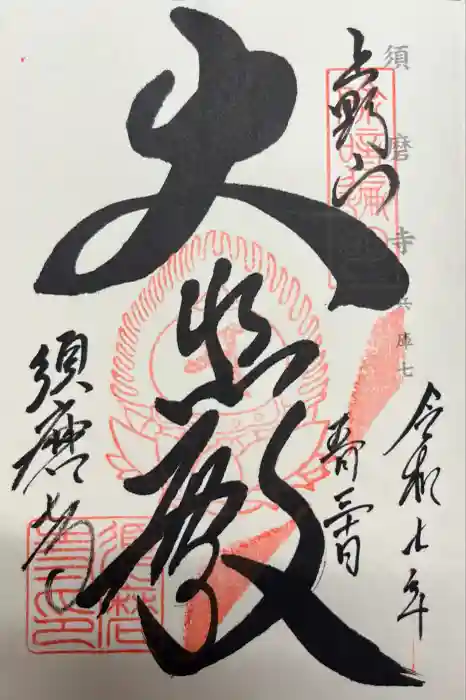 須磨寺 兵庫七
上野山
令和七年
大悲殿
須磨寺